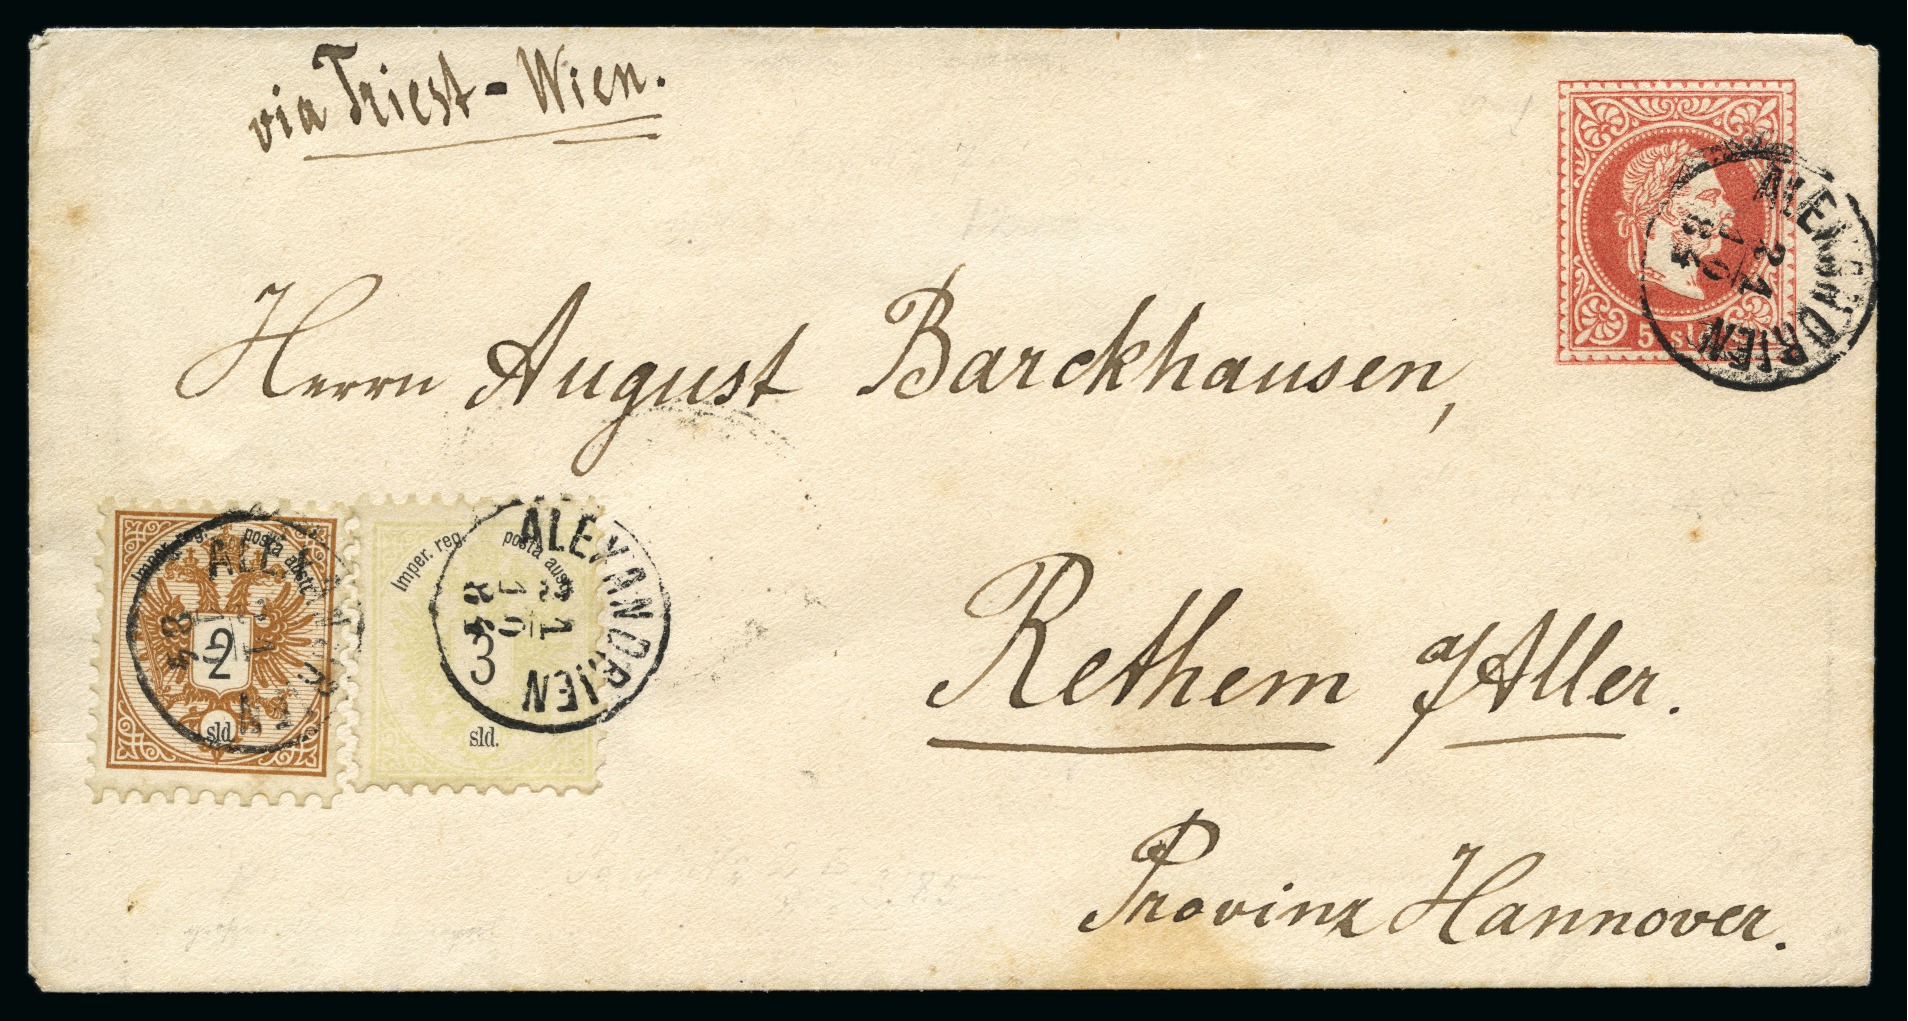 via Triest - Wien.
5 sld
ALEXANDRIEN
21
10
84
Herrn August Barckhausen,
Imper. reg. posta austr.
2
sld.
ALEXANDRIEN
21
84
Imper. reg. posta austr.
3
sld.
ALEXANDRIEN
21
10
84
Rethem a/Aller.
Provinz Hannover.